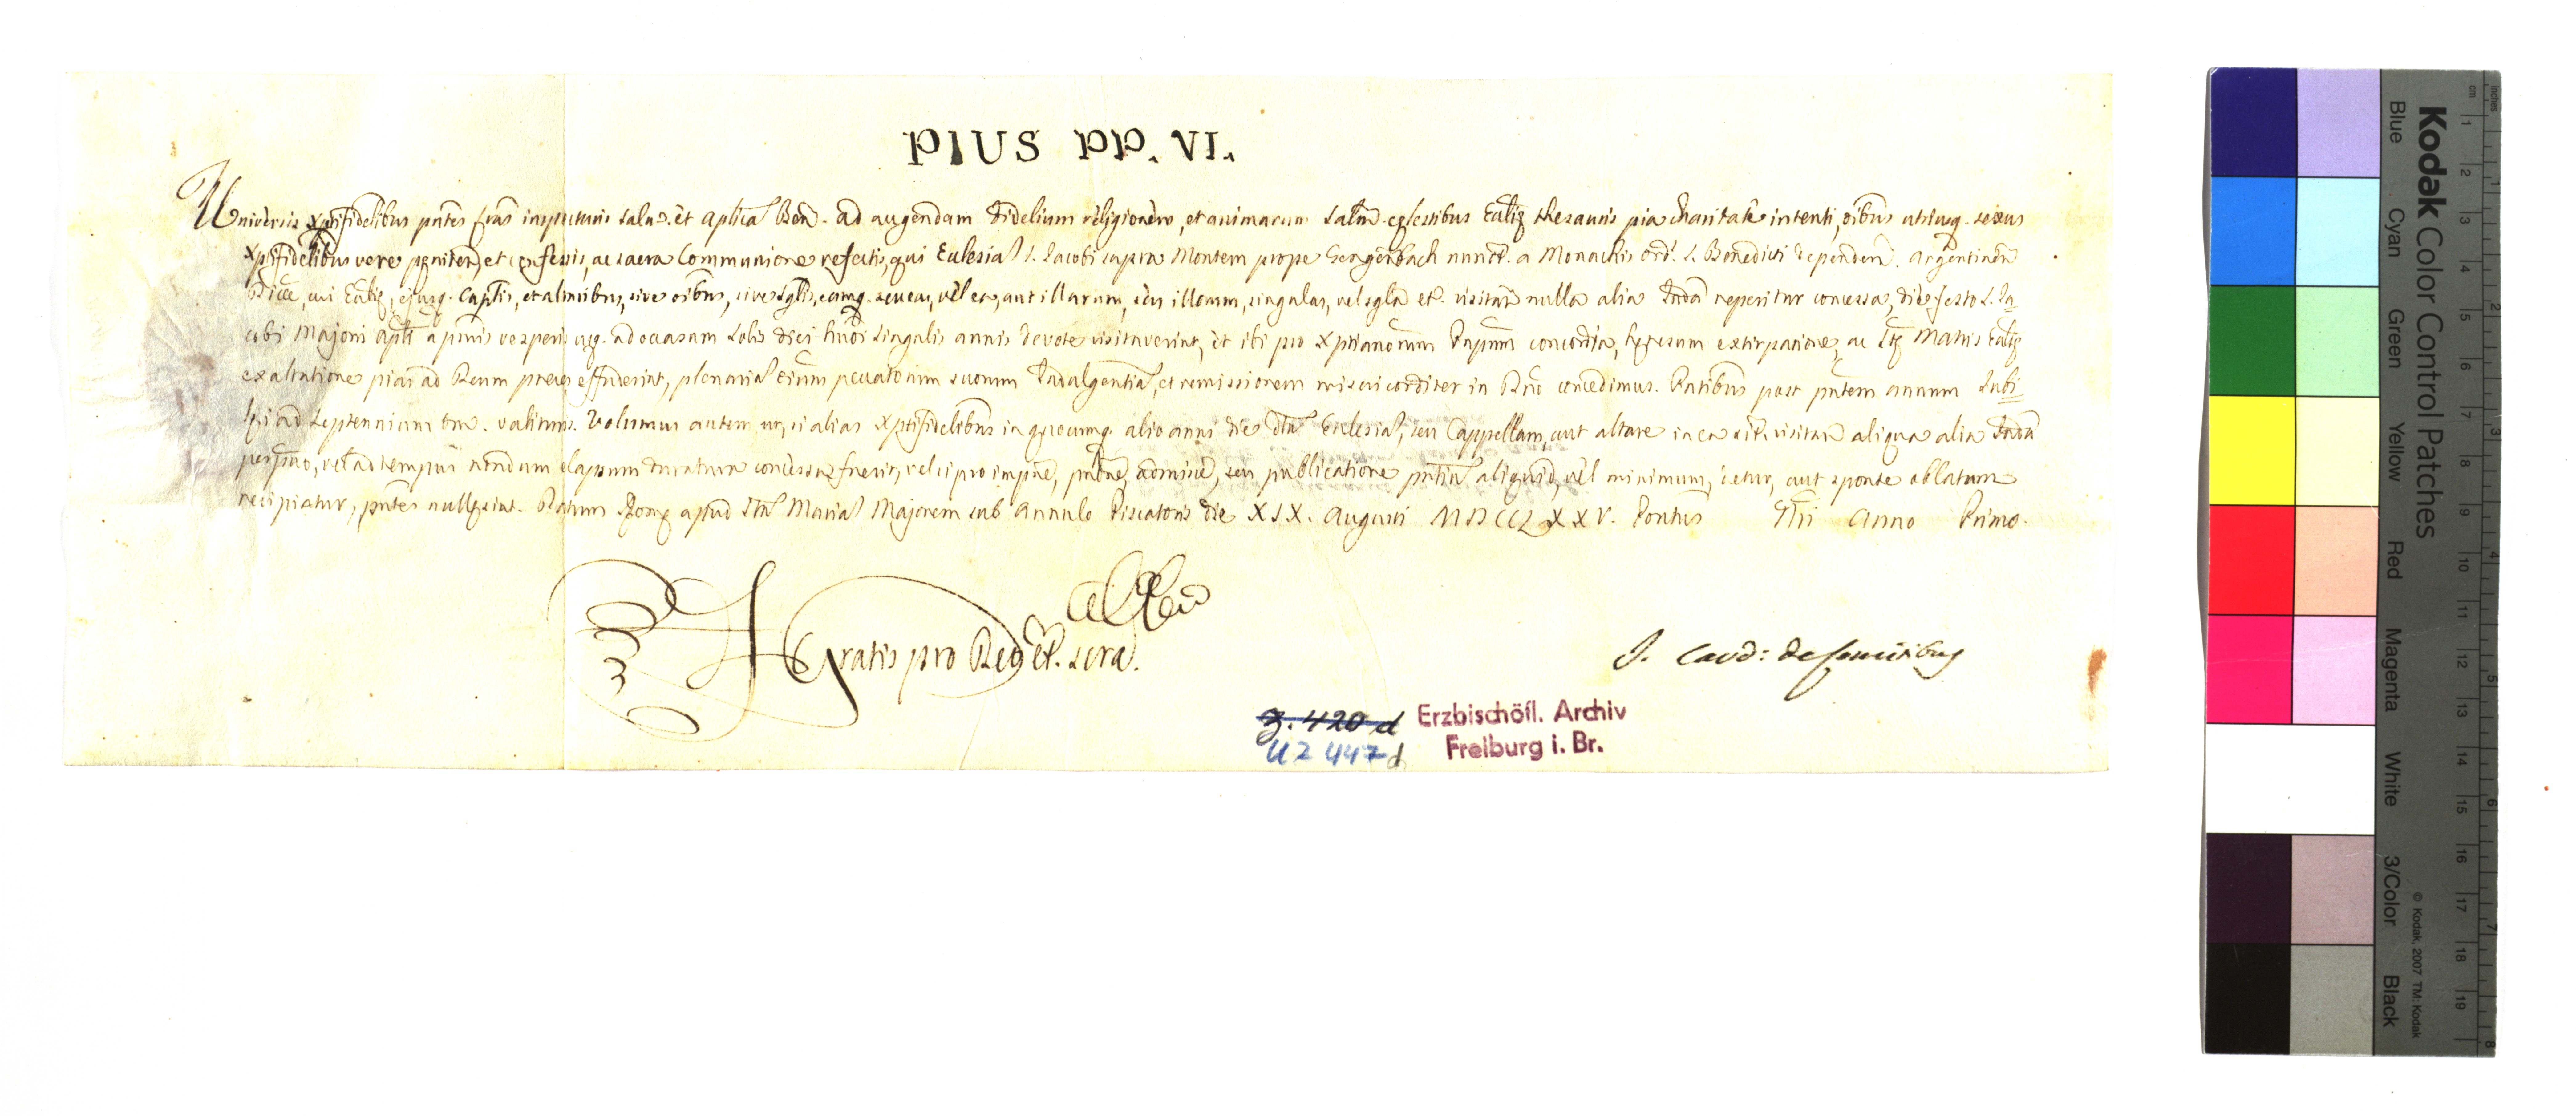 PIUS PP. VI.
Universis Xptifidelibus pntes lras inspecturis salut. et Aplica Ben. Ad augendam Fidelium religionem, et animarum salm. cęlestibus Ecclię thesauris pia charitate intenti, oibus utriusq. sexus
Xptifidelibus vere pęniten. et confessis, ac sacra Communione refectis, qui Ecclesia S. Jacobi supra Montem prope Gengenbach nuncp. a Monachis Ord. S. Benedicti dependen. Argentinen
Diec., cui Ecclię, ejusq. Capflis, et altaribus, sive oibus, sive sglis, eamq. seu eas, vel ea, aut illarum, seu illorum, singulas, vel sgla etc. visitan nulla alia Indā reperitur concessa, die festo S. Ja
cobi Majoris Apli a primis vesperis usq. ad occasum solis diei hmoi singulis annis devote visitaverint, et ibi pro Xptianorum Prpum concordia, hęresum extirpatione, ac Stę Matris Ecclię
exaltatione pias ad Deum preces effuderint, plenaria oium pccatorum suorum Indulgentia, et remissionem misericorditer in Dno concedimus. Pntibus post pntem annum Jubi
lęi ad Septennium tm. valituris. Volumus autem ut, si alias Xptifidelibus in quocumq. alio anni die dta Ecclesia, seu Cappellam, aut altare in ea sit. visitan aliqua alia Indā
perpetuo, vel ad tempus nondum elapsum duratura concessa fuerit, vel si pro impne, pntne, admisne, seu publicatione pntium aliquid, vel minimum, detur, aut sponte oblatum
recipiatur, pntes nullę sint. Datum Romę apud Sta Maria Majorem sub Annulo Piscatoris die XIX. Augusti MDCCLXXV. Pontus Nri Anno Primo.
Gratis pro Deo et. scra.
J. Card: de Comitibus
z. 420 d
U 2 447 d
Erzbischöfl. Archiv
Freiburg i. Br.
Kodak Color Control Patches
Blue Cyan Green Yellow Red Magenta White 3/Color Black
© Kodak, 2007 TM: Kodak
cm 1 2 3 4 5 6 7 8 9 10 11 12 13 14 15 16 17 18 19
inches 1 2 3 4 5 6 7 8